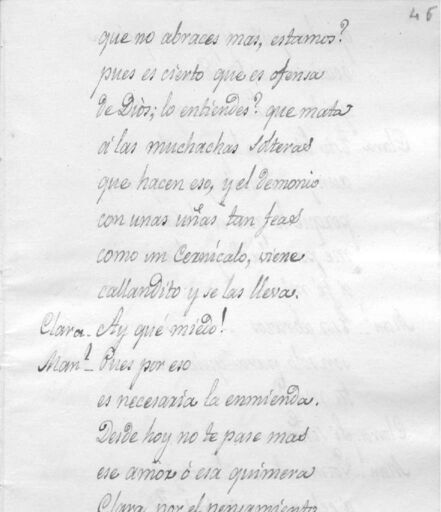 46
que no abraces mas, estamos?
pues es cierto que es ofensa
de Diòs; lo entiendes? que mata
á las muchachas solteras
que hacen eso, y el demonio
con unas uñas tan feas
como un Cernícalo, viene
callandito y se las lleva.
Clara- Ay qué miedo!
Man.l- Pues por eso
es necesaria la enmienda.
Desde hoy no te pase mas
ese amor ó esa quimera
Clara por el pensamiento